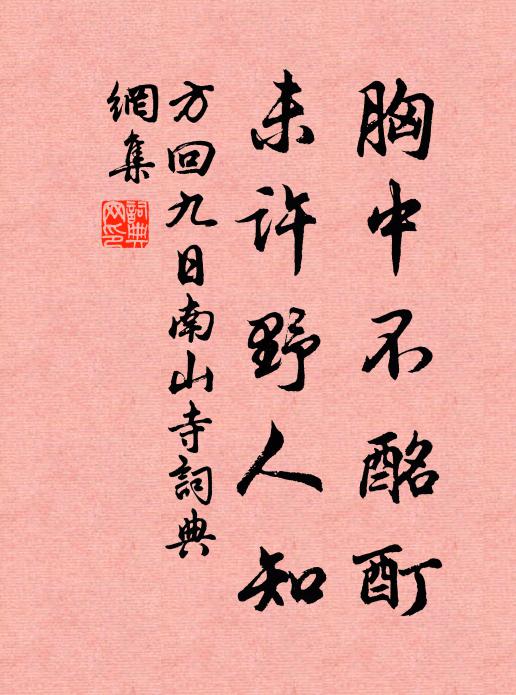 胸中不酩酊
未許野人知
方回九日南山寺詞典
網集
詞典
网印